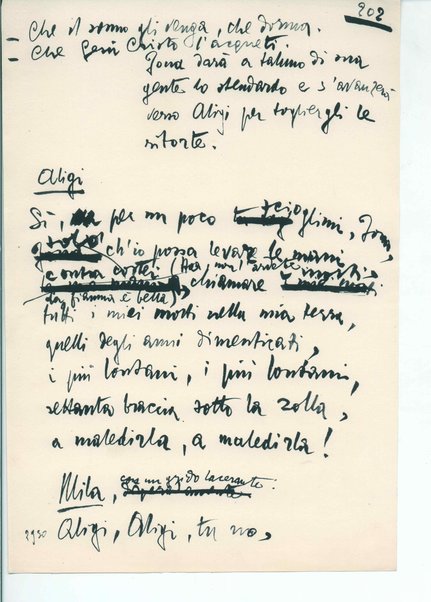 202
Che il sonno gli venga, che dorma.
Che Gesù Cristo l'acqueti.
Jona darà a taluno di sua
gente lo stendardo e s'avanzerà
verso Aligi per togliergli le
ritorte.
Aligi
Sì, per un poco scioglimi, Jona,
solo ch'io possa levare le mani
contra costei (
la fiamma è bella), chiamare i morti
tutti i miei morti nella mia terra,
quelli degli anni dimenticati,
i più lontani, i più lontani,
settanta braccia sotto la zolla,
a maledirla, a maledirla!
Mila, con un grido lacerante.
2930 Aligi, Aligi, tu no,